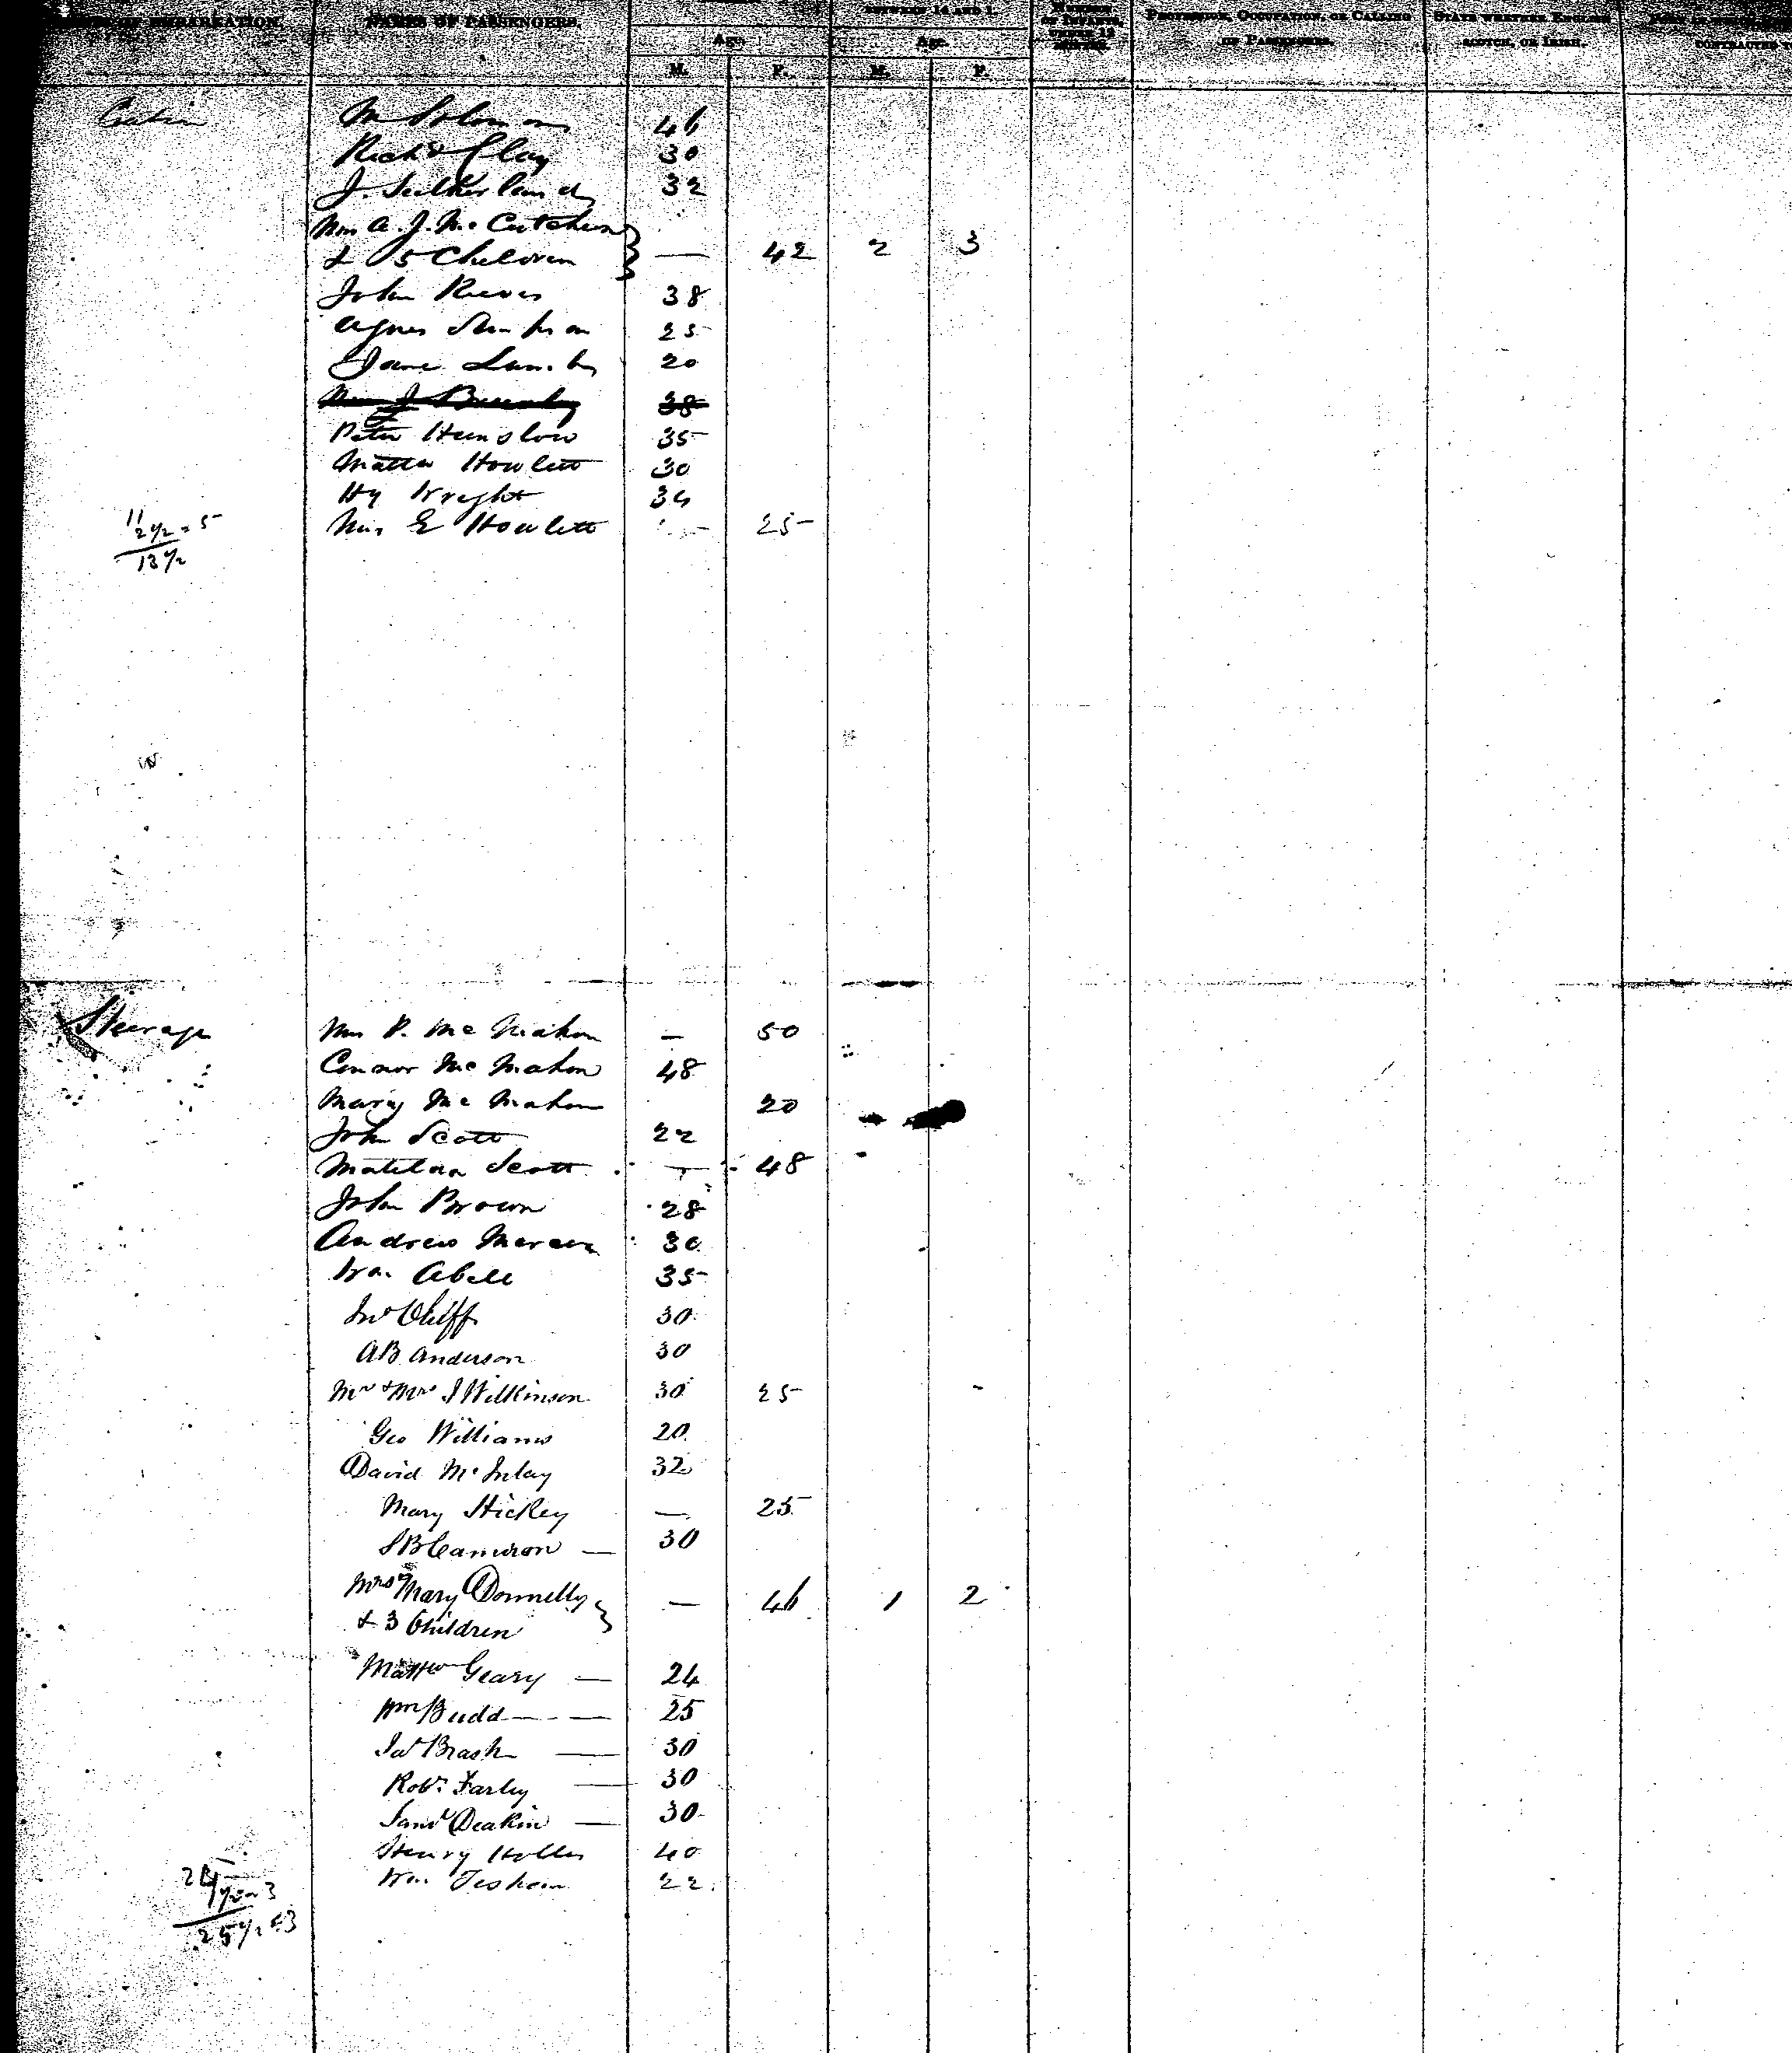 OF EMBARKATION. NAMES OF PASSENGERS. Age. M. F. BETWEEN 14 AND 1. Age. M. F. NUMBER OF INFANTS, UNDER 12 MONTHS. PROFESSION, OCCUPATION, OR CALLING OF PASSENGERS. STATE WHETHER ENGLISH, SCOTCH, OR IRISH. CONTRACTED
Cabin M Solomon 46
Richd Clay 30
J. Sutherland 32
Mrs A. J. McCutcheon
& 5 Children — 42 2 3
John Reeves 38
Agnes 25
Jane 20
Mrs J 38
Peter Henslow 35
Matta Howlett 30
Hy Wright 34
11
2½ = 5 Mrs E Howlett — 25
13½
Steerage Mrs P. McMahon — 50
Connor McMahon 48
Mary McMahon 20
John Scott 22
Matilda Scott — 48
John Brown 28
Andrew 30
Wm Abell 35
Jno 30
AB Anderson 30
Mr & Mrs J Wilkinson 30 25
Geo Williams 20
David McInlay 32
Mary Hickey — 25
SB Cameron — 30
Mrs Mary Donnelly — 46 1 2
& 3 Children
Mattw Geary — 24
Wm Budd — — — 25
Jas Brash — 30
Robt Farley — 30
Saml Deakin — 30
Henry Holles 40
24 Wm 22
1½ = 3
25½ = 3